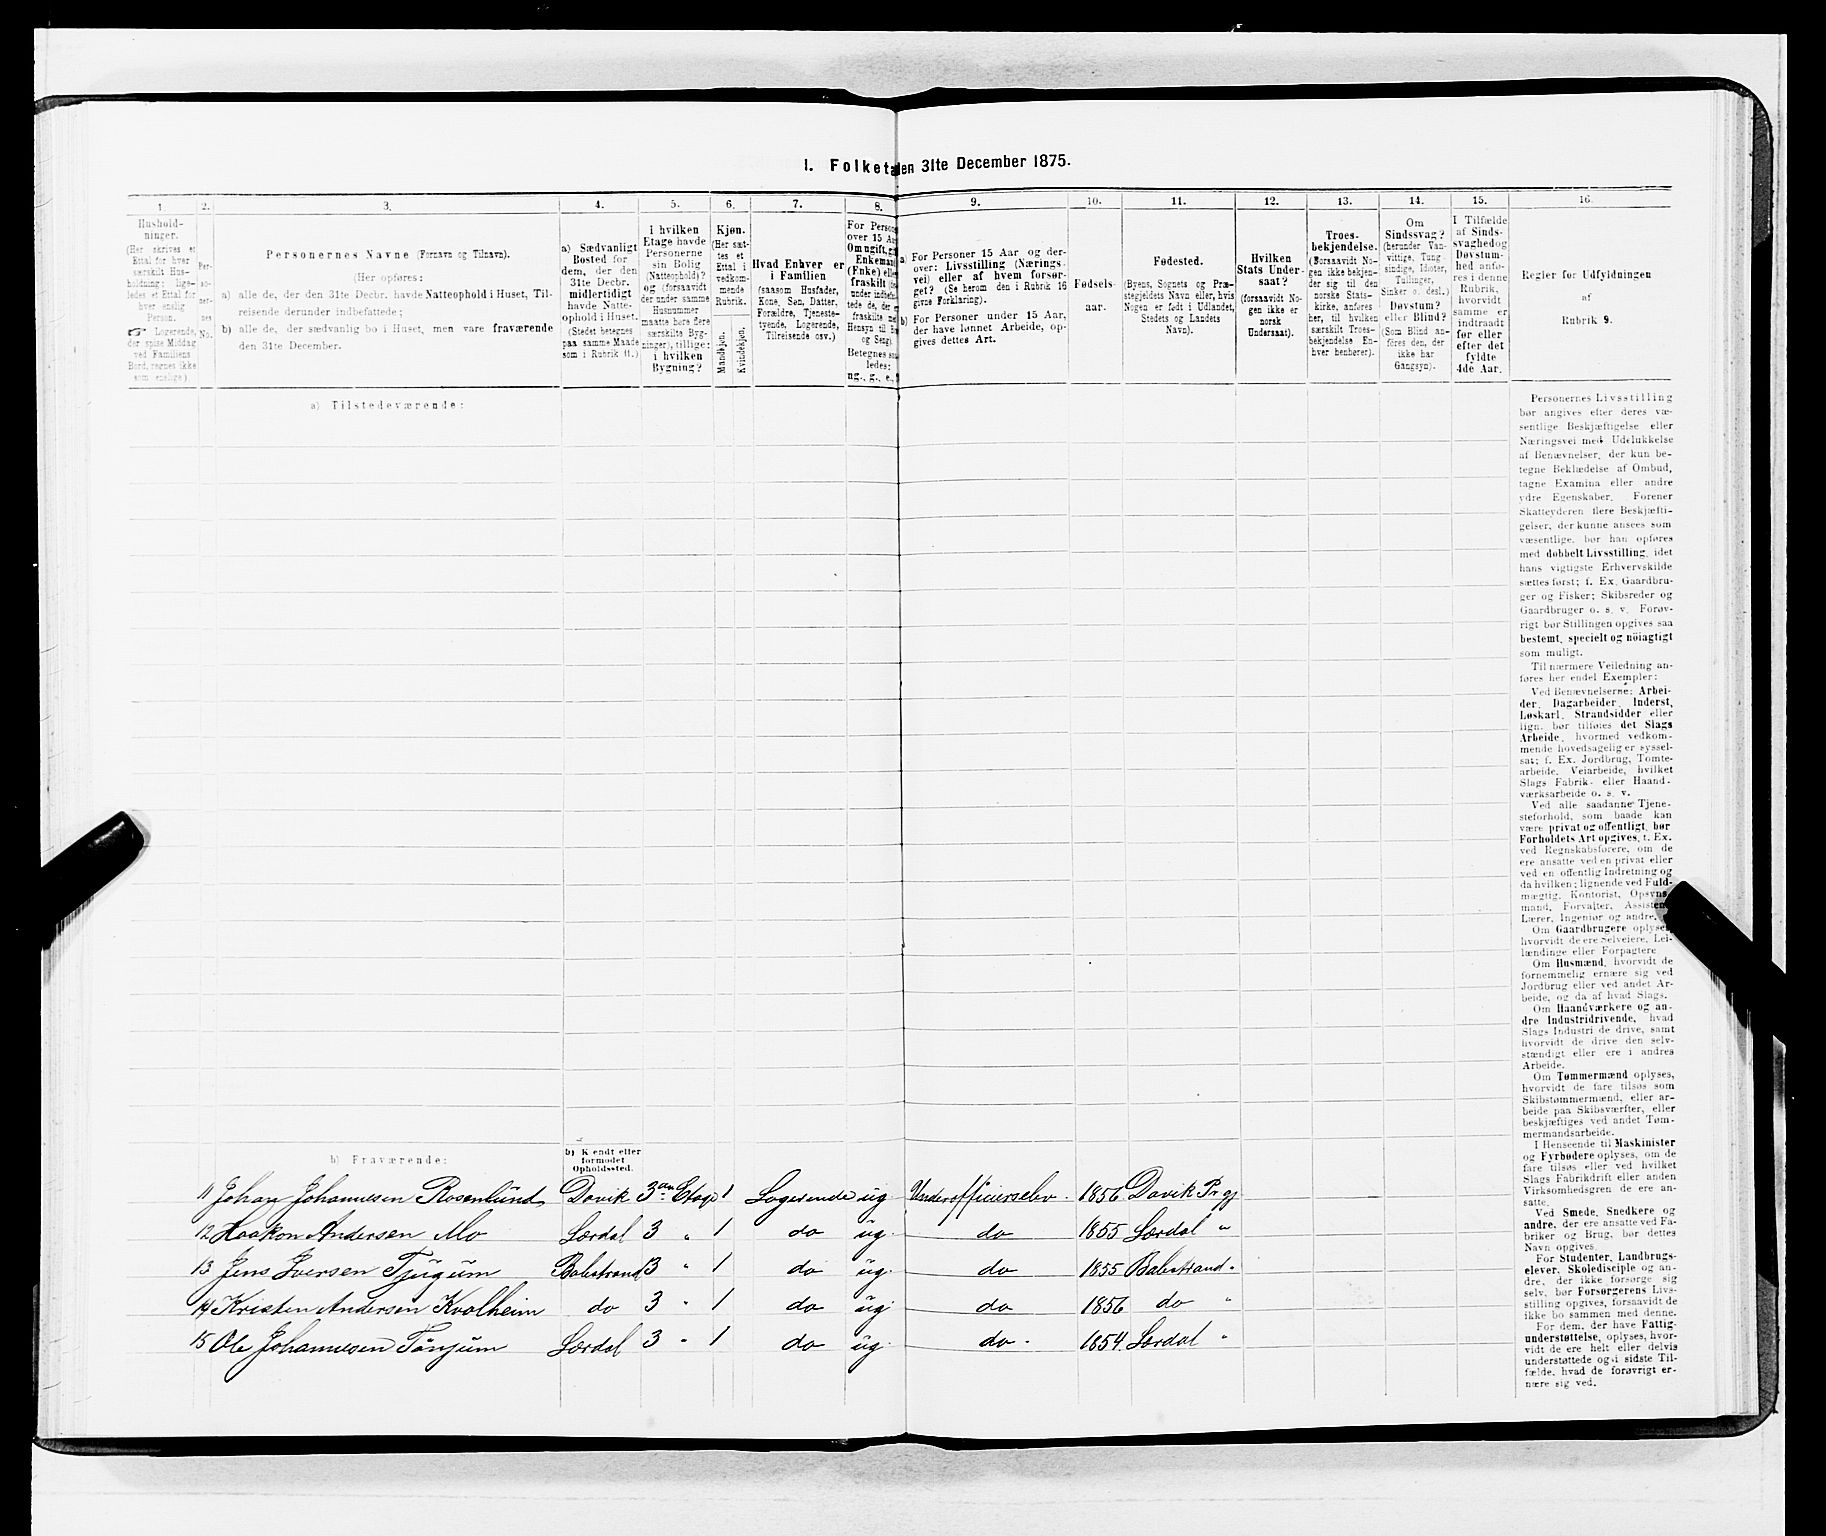 1. Folketa len 31te December 1875.
1. 2. 3. 4. 5. 6. 7. 8. 9. 10. 11. 12. 13. 14. 15. 16.
Hushold-
ninger.
(Her skrives et
Ettal for hver
særskilt Hus-
holdning; lige-
ledes et Ettal for
hver enslig
Person.
☞ Logerende,
der spise Middag
ved Familiens
Bord, regnes ikke
som enslige)
Per-
so-
ner-
nes
No.
Personernes Navne (Fornavn og Tilnavn).
(Her opføres:
a) alle de, der den 31te Decbr. havde Natteophold i Huset, Til-
reisende derunder indbefattede;
b) alle de, der sædvanlig bo i Huset, men vare fraværende
den 31te December.
a) Sædvanligt
Bosted for
dem, der den
31te Decbr.
midlertidigt
havde Natte-
ophold i Huset.
(Stedet betegnes
paa samme Maade
som i Rubrik 11.)
I hvilken
Etage havde
Personerne
sin Bolig
(Natteophold)?
og (forsaavidt
der under samme
Husnummer
maatte høre flere
særskilte Byg-
ninger), tillige:
i hvilken
Bygning?
Kjøn.
(Her sæt-
tes et
Ettal i
vedkom-
mende
Rubrik.
Mandkjøn.
Kvindekjøn.
Hvad Enhver er
i Familien
(saasom Husfader,
Kone, Søn, Datter,
Forældre, Tjeneste-
tyende, Logerende,
Tilreisende osv.)
For Person
over 15 Aa
Om ugift, g
Enkeman
(Enke) elle
fraskilt
under indbefat
tede de, der e
fraskilte me
Hensyn til Bo
og Seng).
Betegnes saa
ledes:
ug., g., e.,
a) For Personer 15 Aar og der-
over: Livsstilling (Nærings-
vei) eller af hvem forsør-
get? (Se herom den i Rubrik 16
givne Forklaring).
b) For Personer under 15 Aar,
der have lønnet Arbeide, op-
gives dettes Art.
Fødsels-
aar.
Fødested.
(Byens, Sognets og Præ-
stegjeldets Navn eller, hvis
Nogen er født i Udlandet,
Stedets og Landets
Navn).
Hvilken
Stats Under-
saat?
(forsaavidt No-
gen ikke er
norsk
Undersaat).
Troes-
bekjendelse.
(Forsaavidt No-
gen ikke bekjen-
der sig til den
norske Stats-
kirke, anføres
her, til hvilken
særskilt Troes-
bekjendelse En-
hver henhører).
Om
Sindssvag?
(herunder Van-
vittige, Tung-
sindige, Idioter,
Tullinger,
Sinker o. desl.)
Døvstum?
eller Blind?
(Som Blind an-
føres den, der
ikke har
Gangsyn).
I Tilfælde
af Sinds-
svaghed og
Døvstum-
hed anfø-
res i denne
Rubrik,
hvorvidt
samme er
indtraadt
før eller
efter det
fyldte
4de Aar.
Regler for Udfyldningen
af
Rubrik 9.
a) Tilstedeværende:
Personernes Livsstilling
bør angives efter deres væ-
sentlige Beskjæftigelse eller
Næringsvei med Udelukkelse
af Benævnelser, der kun be-
tegne Beklædelse af Ombud,
tagne Examina eller andre
ydre Egenskaber. Forener
Skatteyderen flere Beskjæfti-
gelser, der kunne ansees som
væsentlige, bør han opføres
med dobbelt Livsstilling, idet
hans vigtigste Erhvervskilde
sættes først; f. Ex. Gaardbru-
ger og Fisker; Skibsreder og
Gaardbruger o. s. v. Forøv-
rigt bør Stillingen opgives saa
bestemt, specielt og nöiagtigt
som muligt.
Til nærmere Veiledning an-
føres her endel Exempler:
Ved Benævnelserne: Arbei-
der, Dagarbeider, Inderst,
Løskarl, Strandsidder eller
lign. bør tilføies det Slags
Arbeide, hvormed vedkom-
mende hovedsagelig er syssel-
sat; f. Ex. Jordbrug, Tomte-
arbeide, Veiarbeide, hvilket
Slags Fabrik- eller Haand-
værksarbeide o. s. v.
Ved alle saadanne Tjene-
steforhold, som baade kan
være privat og offentligt, bør
Forholdets Art opgives, f. Ex.
ved Regnskabsførere, om de
ere ansatte ved en privat eller
ved en offentlig Indretning og
da hvilken; lignende ved Fuld-
mægtig, Kontorist, Opsyns-
mand, Forvalter, Assisten
Lærer, Ingeniør og andre.
Om Gaardbrugere oplyses,
hvorvidt de ere Selveiere, Lei-
lændinge eller Forpagtere
Om Husmænd, hvorvidt de
fornemmelig ernære sig ved
Jordbrug eller ved andet Ar-
beide, og da af hvad Slags.
Om Haandværkere og an-
dre Industridrivende, hvad
Slags Industri de drive, samt
hvorvidt de drive den selv-
stændigt eller ere i andres
Arbeide.
Om Tømmermænd oplyses,
hvorvidt de fare tilsøs som
Skibstømmermænd, eller ar-
beide paa Skibsværfter, eller
beskjæftiges ved andet Tøm-
mermandsarbeide.
I Henseende til Maskinister
og Fyrbødere oplyses, om de
fare tilsøs eller ved hvilket
Slags Fabrikdrift eller anden
Virksomhedsgren de ere an-
satte.
Ved Smede, Snedkere og
andre, der ere ansatte ved Fa-
briker og Brug, bør dettes
Navn opgives.
For Studenter, Landbrugs-
elever, Skoledisciple og an-
dre, der ikke forsørge sig
selv, bør Forsørgerens Livs-
stilling opgives, forsaavidt de
ikke bo sammen med denne.
For dem, der have Fattig-
understøttelse, oplyses, hvor-
vidt de ere helt eller delvis
understøttede og i sidste Til-
fælde, hvad de forøvrigt er-
nære sig ved.
b) Fraværende:
b) Kjendt eller
formodet
Opholdssted.
11 Johan Johannesen Rosenlund Davik 3die Etage 1 Logerende ug Underofficierselev. 1856 Davik Prgj
12 Haakon Andersen Mo Lærdal 3 " 1 do ug. do 1855 Lærdal "
13 Jens Iversen Tjugum Balestrand 3 " 1 do ug. do 1855 Balestrand "
14 Kristen Andersen Kvalheim do 3 " 1 do ug. do 1856 do "
15 Ole Johannesen Tønjum Lærdal 3 " 1 do ug. do. 1854. Lærdal "